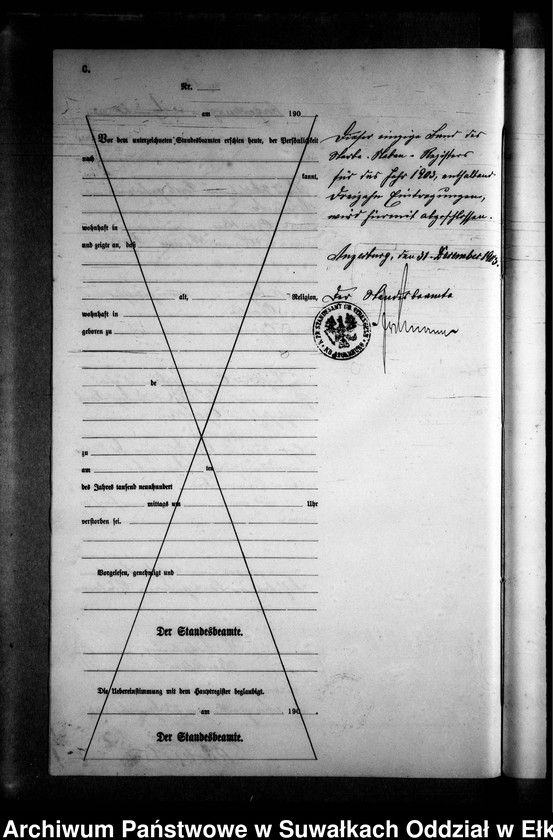 C.
Nr.
am 190
Vor dem unterzeichneten Standesbeamten erschien heute, der Persönlichkeit
nach
kannt,
wohnhaft in
und zeigte an, daß
alt, Religion,
wohnhaft in
geboren zu
de
zu
am ten
des Jahres tausend neunhundert
mittags um Uhr
verstorben sei.
Vorgelesen, genehmigt und
Der Standesbeamte.
Die Uebereinstimmung mit dem Hauptregister beglaubigt.
am 190
Der Standesbeamte.
Dieser einzige Band des
Sterbe-Neben-Registers
für das Jahr 1903, enthaltend
dreizehn Eintragungen,
wird hiermit abgeschlossen.
Angerburg, den 31. Dezember 1903.
Der Standesbeamte
Archiwum Państwowe w Suwałkach Oddział w Ełk